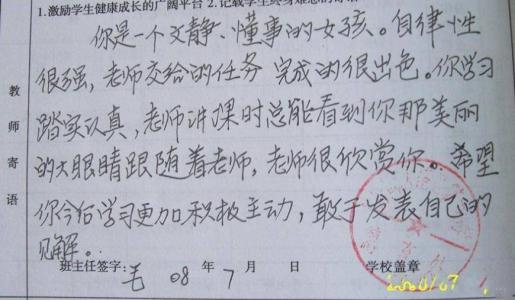 1.激励学生健康成长的广阔平台 2.记载学生终身难忘的
你是一个文静、懂事的女孩。自律性
很强，老师交给的任务完成的很出色。你学习
踏实认真，老师讲课时总能看到你那美丽
的大眼睛跟随着老师，老师很欣赏你。希望
你今后学习更加积极主动，敢于发表自己的
见解。
教师寄语
班主任签字：毛 08年7月 日 学校盖章